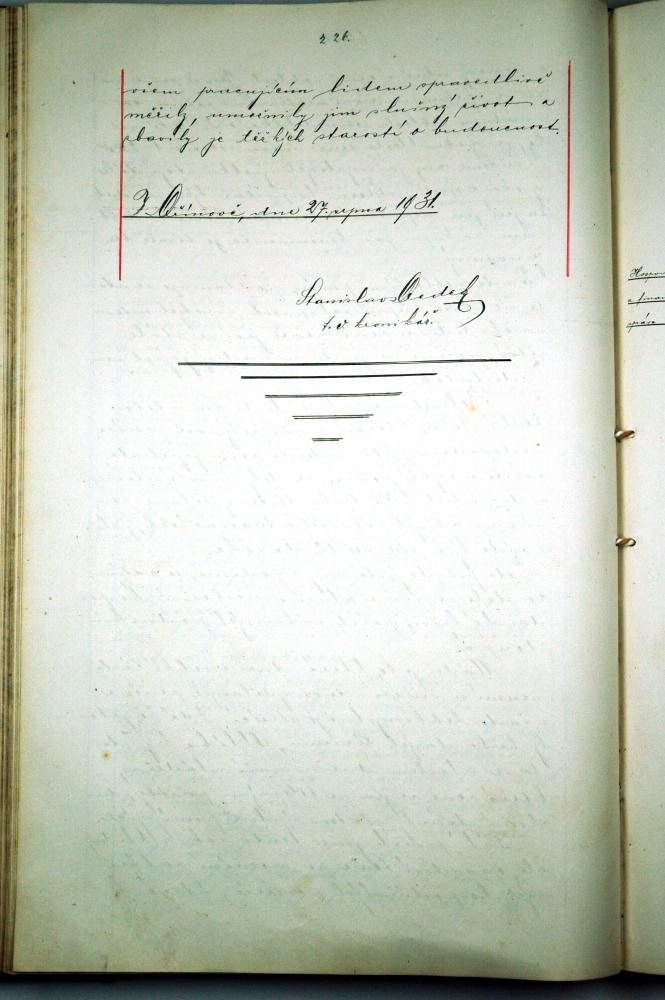 226.
všem pracujícím lidem spravedlivě
měřily, umožnily jim slušný život a
zbavily je těžkých starostí o budoucnost.
dne 27. srpna 1931.
Stanislav
t. č. kronikář.